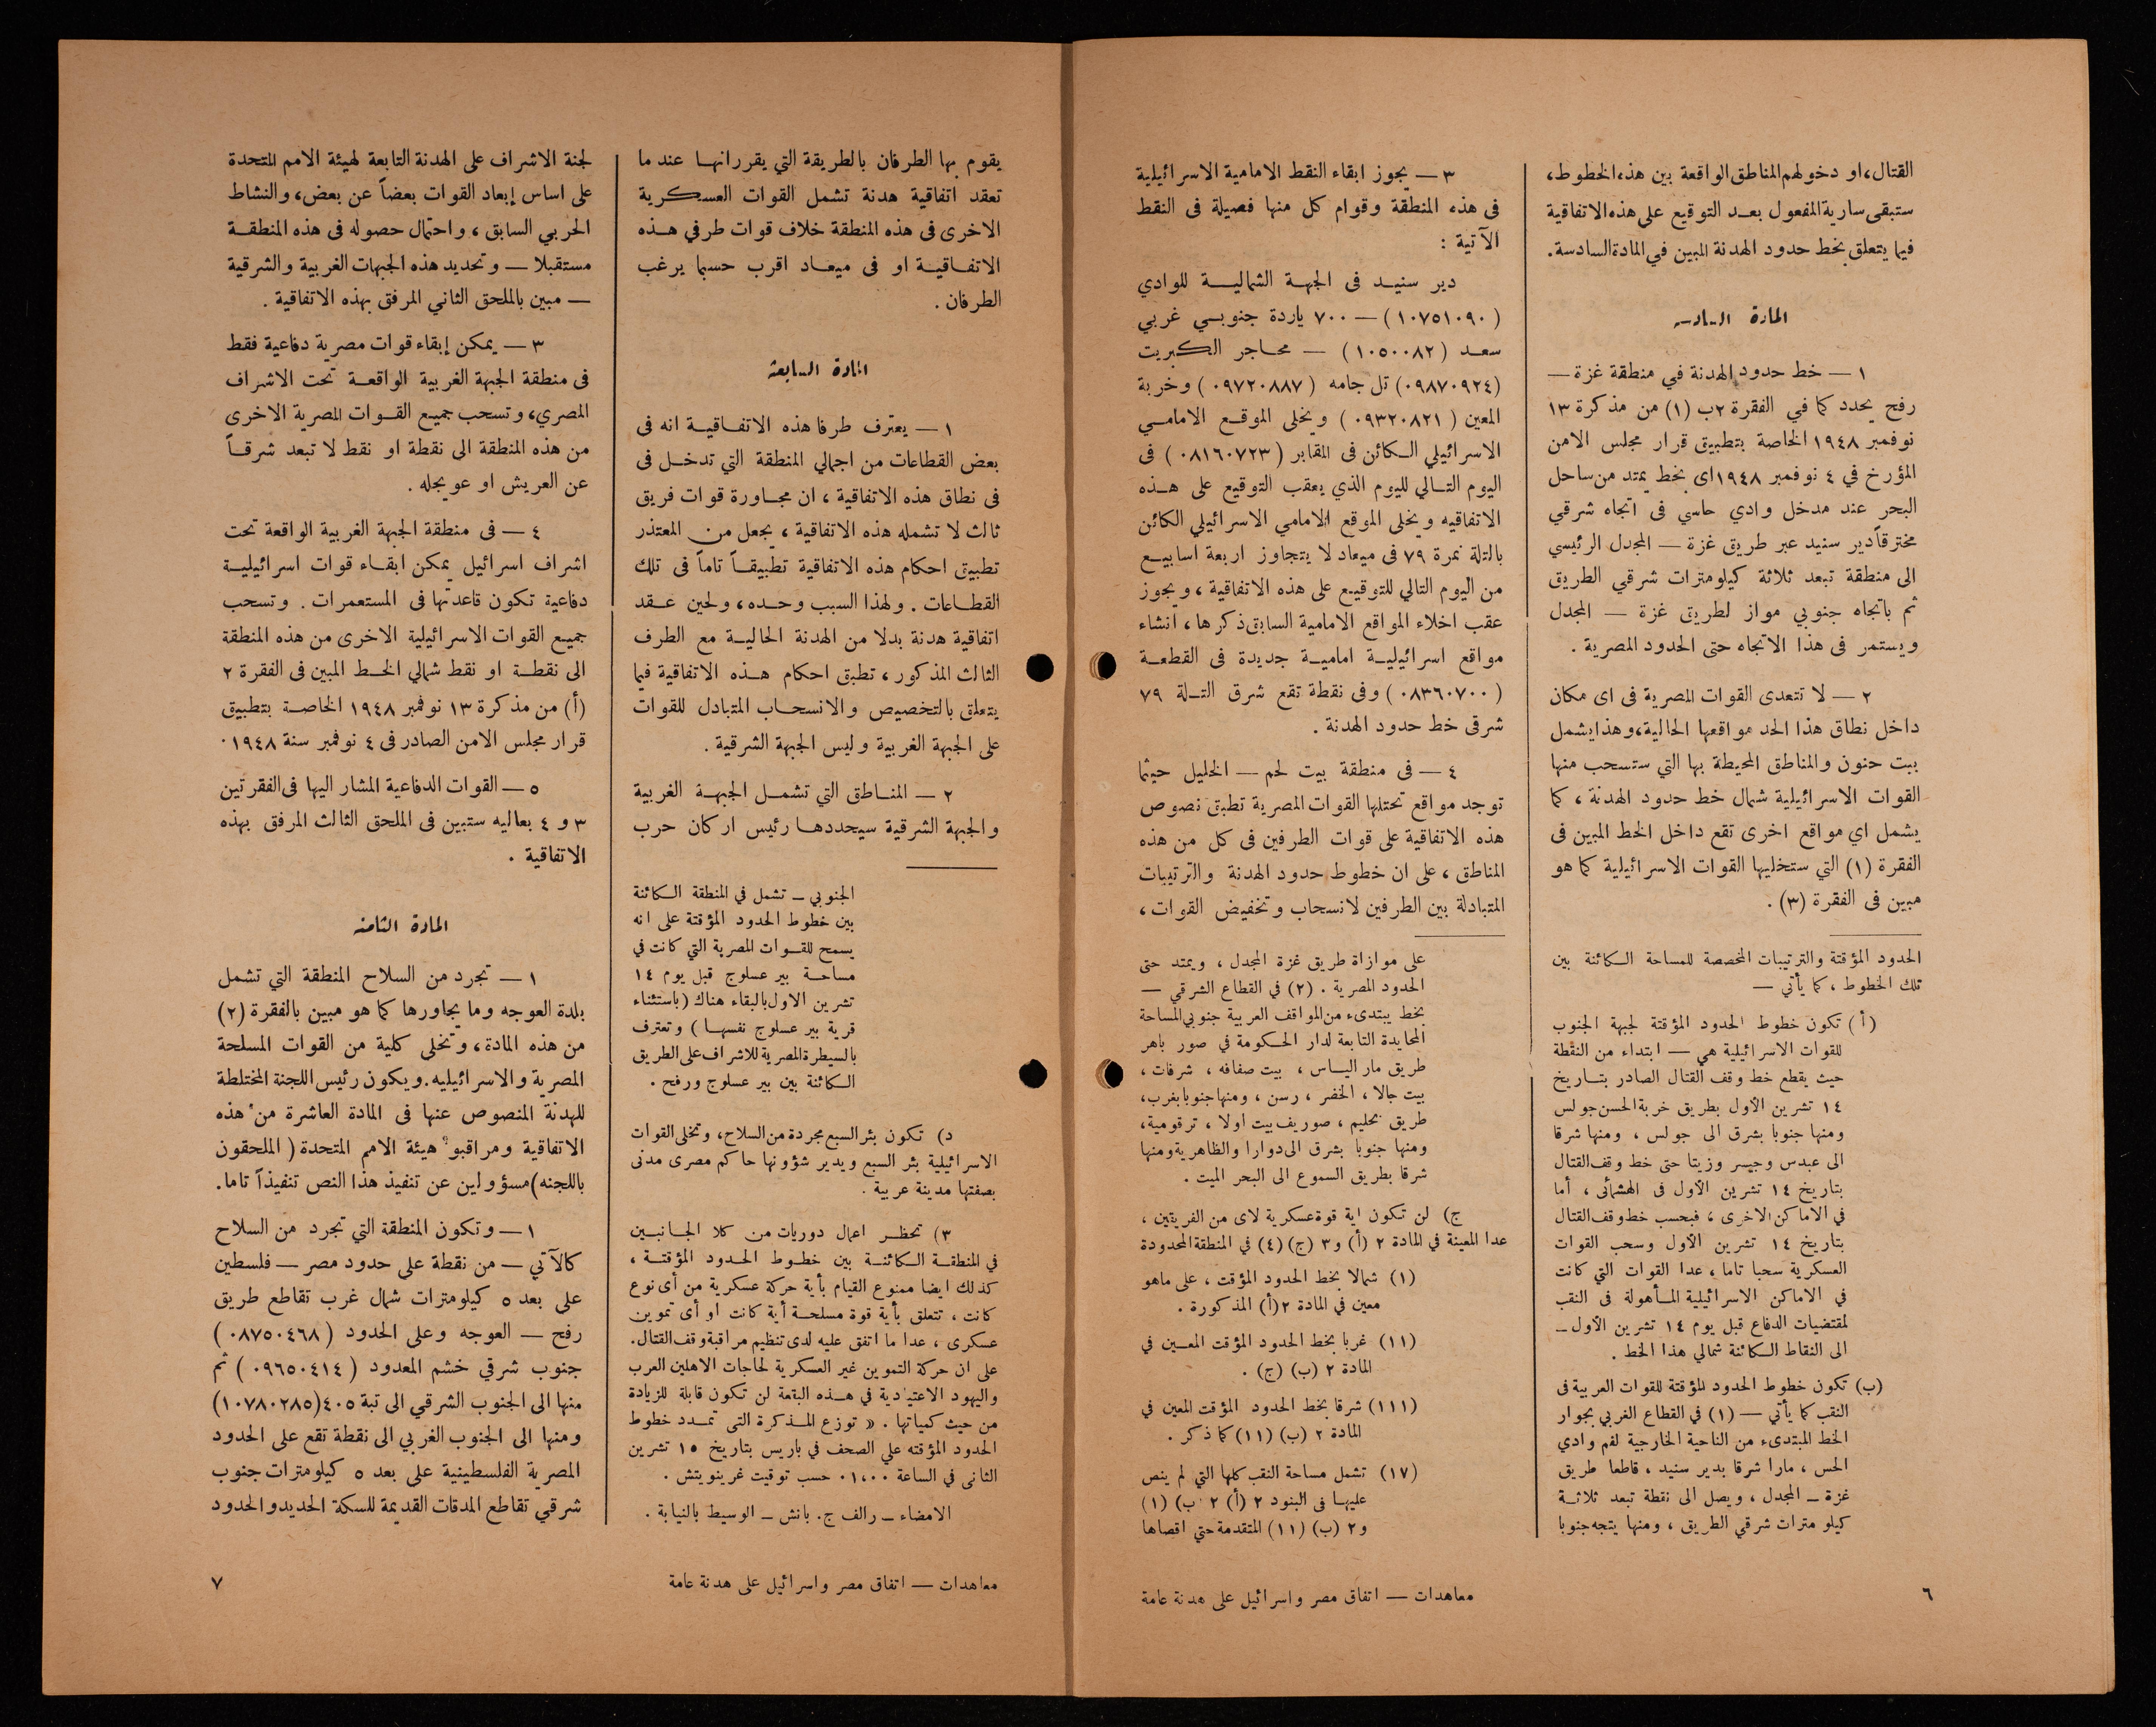 القتال، او دخولهم المناطق الواقعة بين هذه الخطوط،
ستبقى سارية المفعول بعد التوقيع على هذه الاتفاقية
فيما يتعلق بخط حدود الهدنة المبين في المادة السادسة.
المادة السادسة
١ — خط حدود الهدنة في منطقة غزة —
رفح يحدد كما في الفقرة ٢ب (١) من مذكرة ١٣
نوفمبر ١٩٤٨ الخاصة بتطبيق قرار مجلس الامن
المؤرخ في ٤ نوفمبر ١٩٤٨ اى بخط يمتد من ساحل
البحر عند مدخل وادي حاسي فى اتجاه شرقي
مخترقاً دير سنيد عبر طريق غزة — المجدل الرئيسي
الى منطقة تبعد ثلاثة كيلومترات شرقي الطريق
ثم باتجاه جنوبي مواز لطريق غزة — المجدل
ويستمر فى هذا الاتجاه حتى الحدود المصرية .
٢ — لا تتعدى القوات المصرية فى اى مكان
داخل نطاق هذا الحد مواقعها الحالية، وهذا يشمل
بيت حنون والمناطق المحيطة بها التي ستسحب منها
القوات الاسرائيلية شمال خط حدود الهدنة ، كما
يشمل اي مواقع اخرى تقع داخل الخط المبين فى
الفقرة (١) التي ستخليها القوات الاسرائيلية كما هو
مبين فى الفقرة (٣) .
الحدود المؤقتة والترتيبات المخصصة للمساحة الكائنة بين
تلك الخطوط ، كما يأتي —
(أ) تكون خطوط الحدود المؤقتة لجبهة الجنوب
للقوات الاسرائيلية هي — ابتداء من النقطة
حيث يقطع خط وقف القتال الصادر بتاريخ
١٤ تشرين الأول بطريق خربة الحسن جولس
ومنها جنوبا بشرق الى جولس ، ومنها شرقا
الى عبدس وجيسر وزيتا حتى خط وقف القتال
بتاريخ ١٤ تشرين الأول فى الهشمائى ، أما
في الأماكن الاخرى ، فبحسب خط وقف القتال
بتاريخ ١٤ تشرين الأول وسحب القوات
العسكرية سحبا تاما ، عدا القوات التي كانت
في الاماكن الاسرائيلية المأهولة فى النقب
لمقتضيات الدفاع قبل يوم ١٤ تشرين الأول —
الى النقاط الكائنة شمالي هذا الخط .
(ب) تكون خطوط الحدود المؤقتة للقوات العربية فى
النقب كما يأتي — (١) في القطاع الغربي بجوار
الخط المبتدىء من الناحية الخارجية لفم وادي
الحس ، مارا شرقا بدير سنيد ، قاطعا طريق
غزة — المجدل ، ويصل الى نقطة تبعد ثلاثة
كيلو مترات شرقي الطريق ، ومنها يتجه جنوبا
٣ — يجوز ابقاء النقط الامامية الاسرائيلية
فى هذه المنطقة وقوام كل منها فصيلة فى النقط
الآتية :
دير سنيد فى الجهة الشمالية للوادي
( ١٠٧٥١٠٩٠ ) — ٧٠٠ ياردة جنوبي غربي
سعد ( ١٠٥٠٠٨٢ ) — محاجر الكبريت
(٠٩٨٧٠٩٢٤) تل جامه (٠٩٧٢٠٨٨٧) وخربة
المعين ( ٠٩٣٢٠٨٢١ ) ويخلى الموقع الامامي
الاسرائيلي الكائن فى المقابر ( ٠٨١٦٠٧٢٣ ) فى
اليوم التالي لليوم الذي يعقب التوقيع على هذه
الاتفاقيه ويخلى الموقع الامامي الاسرائيلي الكائن
بالتلة نمرة ٧٩ فى ميعاد لا يتجاوز اربعة اسابيع
من اليوم التالي للتوقيع على هذه الاتفاقية ، ويجوز
عقب اخلاء المواقع الامامية السابق ذكرها ، انشاء
مواقع اسرائيلية امامية جديدة فى القطعة
( ٠٨٣٦٠٧٠٠ ) وفى نقطة تقع شرق التلة ٧٩
شرقى خط حدود الهدنة .
٤ — فى منطقة بيت لحم — الخليل حيثما
توجد مواقع تحتلها القوات المصرية تطبق نصوص
هذه الاتفاقية على قوات الطرفين فى كل من هذه
المناطق ، على ان خطوط حدود الهدنة والترتيبات
المتبادلة بين الطرفين لانسحاب وتخفيض القوات ،
على موازاة طريق غزة المجدل ، ويمتد حتى
الحدود المصرية . (٢) في القطاع الشرقي —
بخط يبتدىء من المواقف العربية جنوبي المساحة
المحايدة التابعة لدار الحكومة في صور باهر
طريق مار الياس ، بيت صفافه ، شرفات ،
بيت جالا ، الخضر ، رسن ، ومنها جنوبا بغرب،
طريق نحليم ، صوريف بيت اولا ، ترقومية،
ومنها جنوبا بشرق الى دوارا والظاهرية ومنها
شرقا بطريق السموع الى البحر الميت .
ج) لن تكون اية قوة عسكرية لاى من الفريقين ،
عدا المعينة في المادة ٢ (أ) و٣ (ج) (٤) في المنطقة المحدودة
(١) شمالا بخط الحدود المؤقت ، على ماهو
معين في المادة ٢(أ) المذكورة .
(١١) غربا بخط الحدود المؤقت المعين في
المادة ٢ (ب) (ج) .
(١١١) شرقا بخط الحدود المؤقت المعين في
المادة ٢ (ب) (١١) كما ذكر .
(١٧) تشمل مساحة النقب كلها التي لم ينص
عليها فى البنود ٢ (أ) ٢ (ب) (١)
و٢ (ب) (١١) المتقدمة حتى اقصاها
معاهدات — اتفاق مصر واسرائيل على هدنة عامة
٦
يقوم بها الطرفان بالطريقة التي يقررانها عندما
تعقد اتفاقية هدنة تشمل القوات العسكرية
الاخرى فى هذه المنطقة خلاف قوات طرفي هذه
الاتفاقية او فى ميعاد اقرب حسبما يرغب
الطرفان .
المادة السابعة
١ — يعترف طرفا هذه الاتفاقية انه فى
بعض القطاعات من اجمالي المنطقة التي تدخل فى
فى نطاق هذه الاتفاقية ، ان مجاورة قوات فريق
ثالث لا تشمله هذه الاتفاقية ، يجعل من المعتذر
تطبيق احكام هذه الاتفاقية تطبيقاً تاماً فى تلك
القطاعات . ولهذا السبب وحده ، ولحين عقد
اتفاقية هدنة بدلا من الهدنة الحالية مع الطرف
الثالث المذكور ، تطبق احكام هذه الاتفاقية فيما
يتعلق بالتخصيص والانسحاب المتبادل للقوات
على الجبهة الغربية وليس الجبهة الشرقية .
٢ — المناطق التي تشمل الجبهة الغربية
والجبهة الشرقية سيحددها رئيس اركان حرب
الجنوبي — تشمل في المنطقة الكائنة
بين خطوط الحدود المؤقتة على انه
يسمح للقوات المصرية التي كانت في
مساحة بير عسلوج قبل يوم ١٤
تشرين الاول بالبقاء هناك (باستثناء
قرية بير عسلوج نفسها) وتعترف
بالسيطرة المصرية للاشراف على الطريق
الكائنة بين بير عسلوج ورفح .
د) تكون بئر السبع مجردة من السلاح، وتخلى القوات
الاسرائيلية بئر السبع ويدير شؤونها حاكم مصرى مدنى
بصفتها مدينة عربية .
٣) تحظر اعمال دوريات من كلا الجانبين
في المنطقة الكائنة بين خطوط الحدود المؤقتة ،
كذلك ايضا ممنوع القيام بأية حركة عسكرية من أى نوع
كانت ، تتعلق بأية قوة مسلحة أية كانت او أى تموين
عسكرى ، عدا ما اتفق عليه لدى تنظيم مراقبة وقف القتال.
على ان حركة التموين غير العسكرية لحاجات الاهلين العرب
واليهود الاعتيادية في هذه البقعة لن تكون قابلة للزيادة
من حيث كمياتها . « توزع المذكرة التى تمدد خطوط
الحدود المؤقته علي الصحف في باريس بتاريخ ١٥ تشرين
الثانى في الساعة ٠١،٠٠ حسب توقيت غرينويتش .
الامضاء — رالف ج. بانش — الوسيط بالنيابة .
لجنة الاشراف على الهدنة التابعة لهيئة الامم المتحدة
على اساس إبعاد القوات بعضاً عن بعض، والنشاط
الحربي السابق ، واحتمال حصوله فى هذه المنطقة
مستقبلا — وتحديد هذه الجبهات الغربية والشرقية
— مبين بالملحق الثاني المرفق بهذه الاتفاقية .
٣ — يمكن إبقاء قوات مصرية دفاعية فقط
فى منطقة الجبهة الغربية الواقعة تحت الاشراف
المصري، وتسحب جميع القوات المصرية الاخرى
من هذه المنطقة الى نقطة او نقط لا تبعد شرقاً
عن العريش او عويجله .
٤ — فى منطقة الجبهة الغربية الواقعة تحت
اشراف اسرائيل يمكن ابقاء قوات اسرائيلية
دفاعية تكون قاعدتها فى المستعمرات . وتسحب
جميع القوات الاسرائيلية الاخرى من هذه المنطقة
الى نقطة او نقط شمالي الخط المبين فى الفقرة ٢
(أ) من مذكرة ١٣ نوفمبر ١٩٤٨ الخاصة بتطبيق
قرار مجلس الامن الصادر فى ٤ نوفمبر سنة ١٩٤٨٠
٥ — القوات الدفاعية المشار اليها فى الفقرتين
٣ و ٤ بعاليه ستبين فى الملحق الثالث المرفق بهذه
الاتفاقية .
المادة الثامنة
١ — تجرد من السلاح المنطقة التي تشمل
بلدة العوجه وما يجاورها كما هو مبين بالفقرة (٢)
من هذه المادة، وتخلى كلية من القوات المسلحة
المصرية والاسرائيليه. ويكون رئيس اللجنة المختلطة
للهدنة المنصوص عنها فى المادة العاشرة من هذه
الاتفاقية ومراقبو هيئة الامم المتحدة (الملحقون
باللجنه) مسؤولين عن تنفيذ هذا النص تنفيذاً تاما.
١ — وتكون المنطقة التي تجرد من السلاح
كالآتي — من نقطة على حدود مصر — فلسطين
على بعد ٥ كيلومترات شمال غرب تقاطع طريق
رفح — العوجه وعلى الحدود ( ٠٨٧٥٠٤٦٨ )
جنوب شرقي خشم المعدود ( ٠٩٦٥٠٤١٤ ) ثم
منها الى الجنوب الشرقي الى تبة ٤٠٥ (١٠٧٨٠٢٨٥)
ومنها الى الجنوب الغربي الى نقطة تقع على الحدود
المصرية الفلسطينية على بعد ٥ كيلومترات جنوب
شرقي تقاطع المدقات القديمة للسكة الحديد والحدود
معاهدات — اتفاق مصر واسرائيل على هدنة عامة
٧